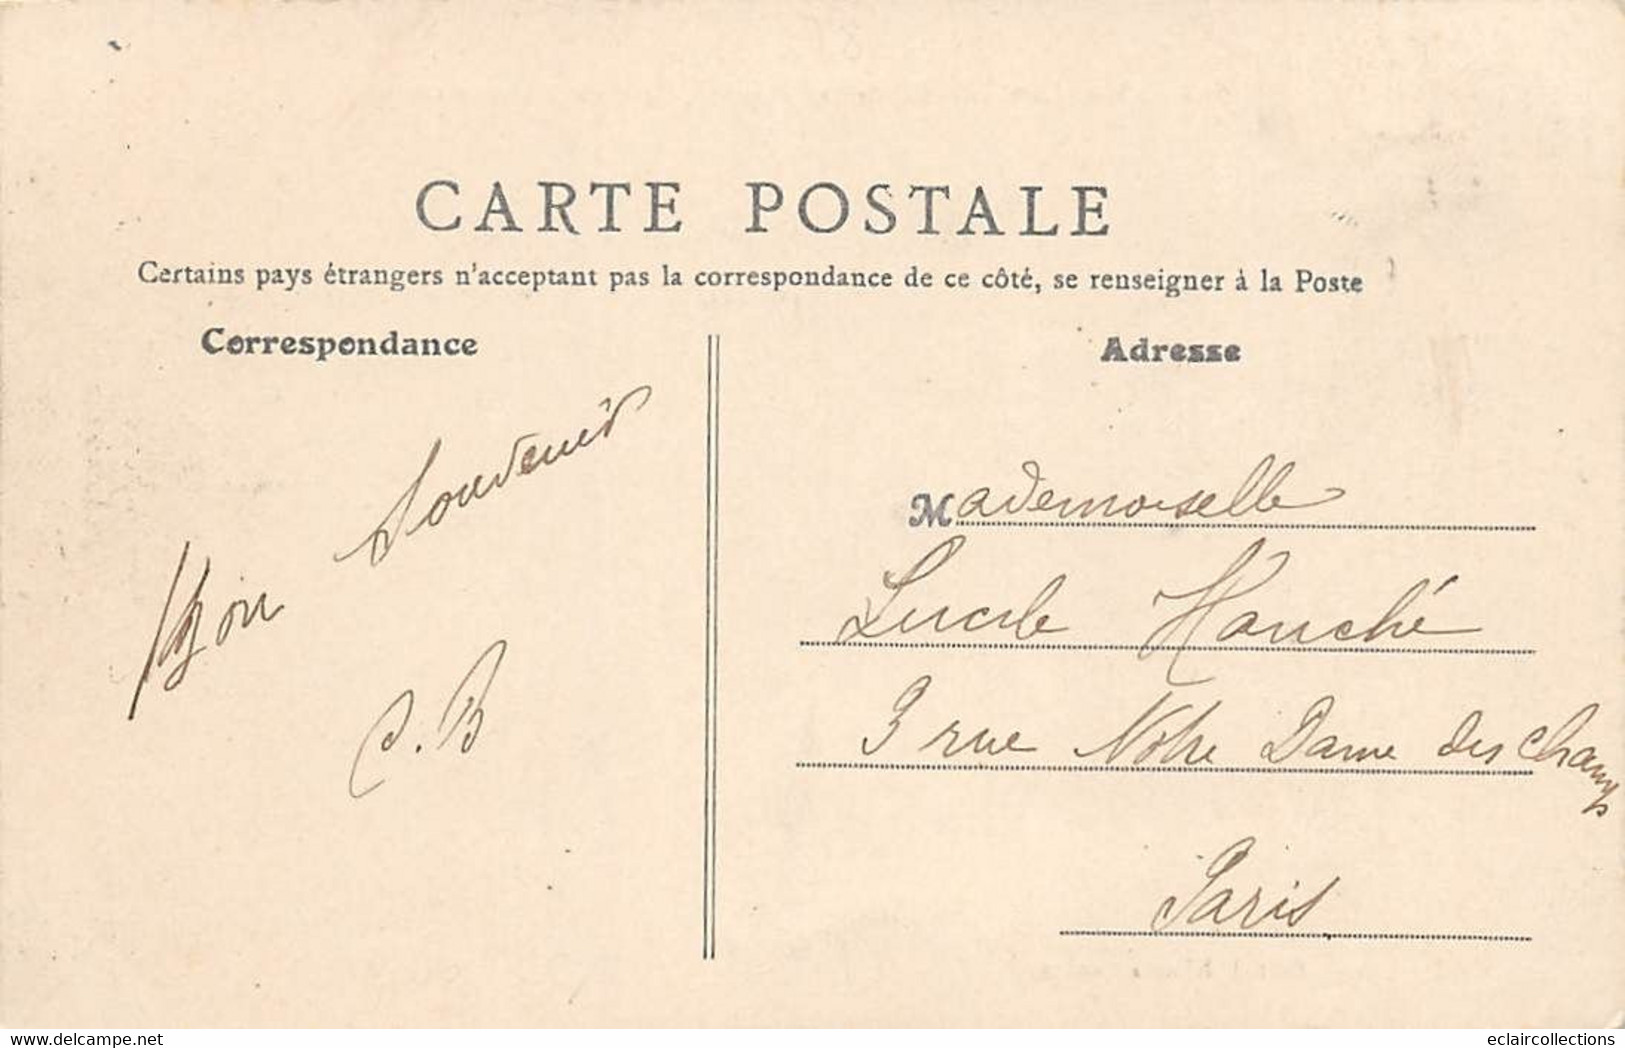 CARTE POSTALE
Certains pays étrangers n'acceptant pas la correspondance de ce côté, se renseigner à la Poste
Correspondance
Adresse
Bon Souvenir
C.B
Mademoiselle
Lucile Hauché
3 rue Notre Dame des Champs
Paris
www.delcampe.net
eclaircollections